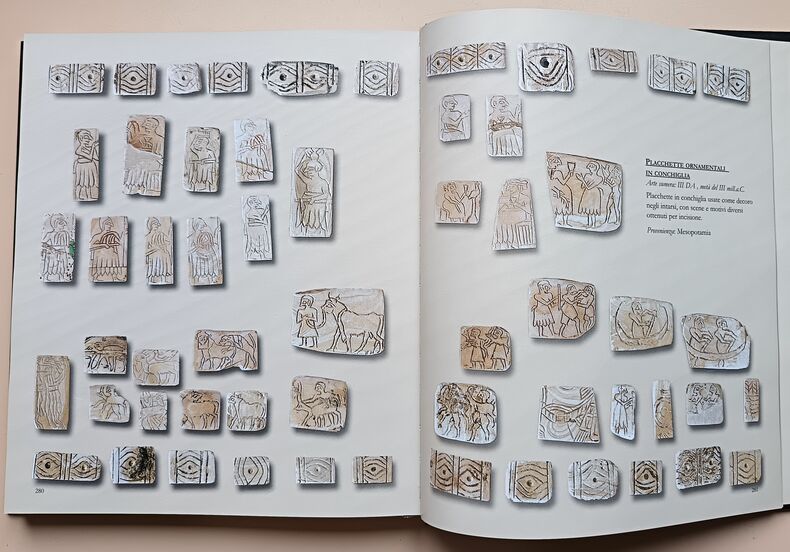 280
PLACCHETTE ORNAMENTALI
IN CONCHIGLIA
Arte sumera: III DA, metà del III mill.a.C.
Placchette in conchiglia usate come decoro
negli intarsi, con scene e motivi diversi
ottenuti per incisione.
Provenienza: Mesopotamia